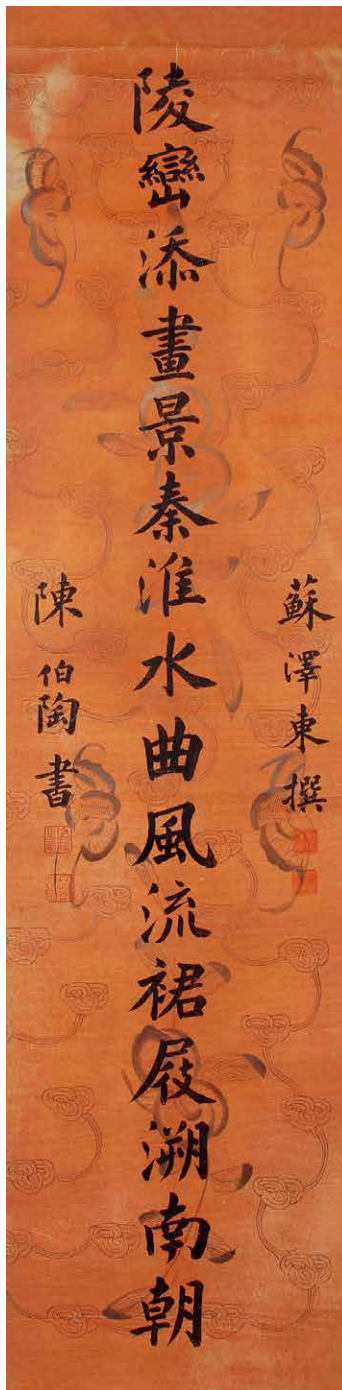 蘇澤東撰
陵巒添畫景秦淮水曲風流裙屐溯南朝
陳伯陶書